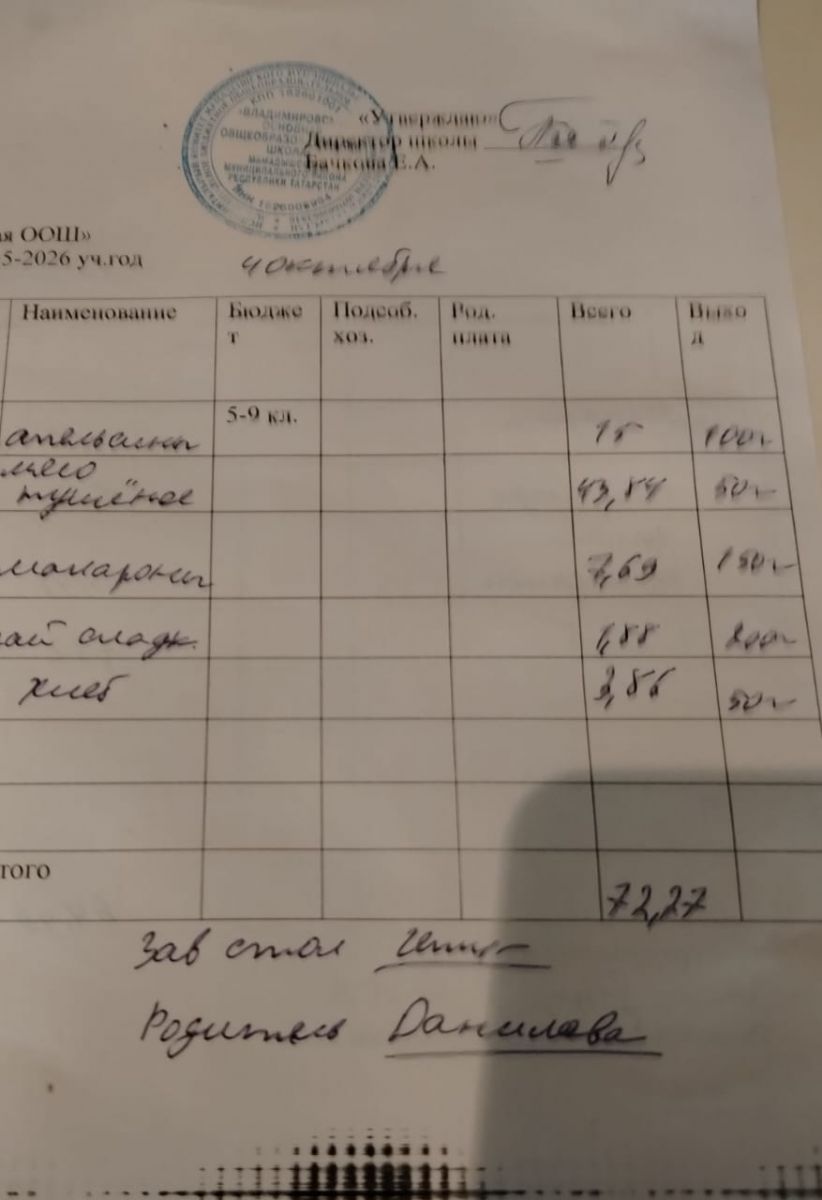 «Утверждаю»
Директор школы
Бачкова Е.А.
КПП 162601001
«ВЛАДИМИРОВС
ОСНОВН
ОБЩЕОБРАЗО
ШКОЛА
МУНИЦИПАЛЬНОГО РАЙОНА
РЕСПУБЛИКИ ТАТАРСТАН
ая ООШ»
5-2026 уч.год
4 октября
Наименование Бюджет Подсоб. хоз. Род. плата Всего Выход
5-9 кл.
апельсины 15 100г
мясо тушёное 43,84 50г
макароны 7,69 150г
чай сладк. 1,88 200г
хлеб 3,86 50г
того 72,27
Зав стол
Родитель Данилова